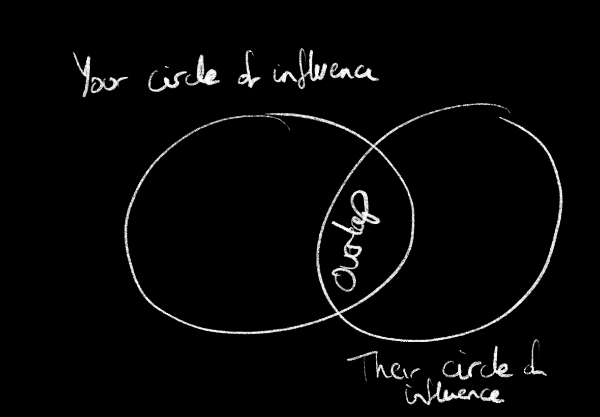 Your circle of influence
Overlap
Their circle of
influence